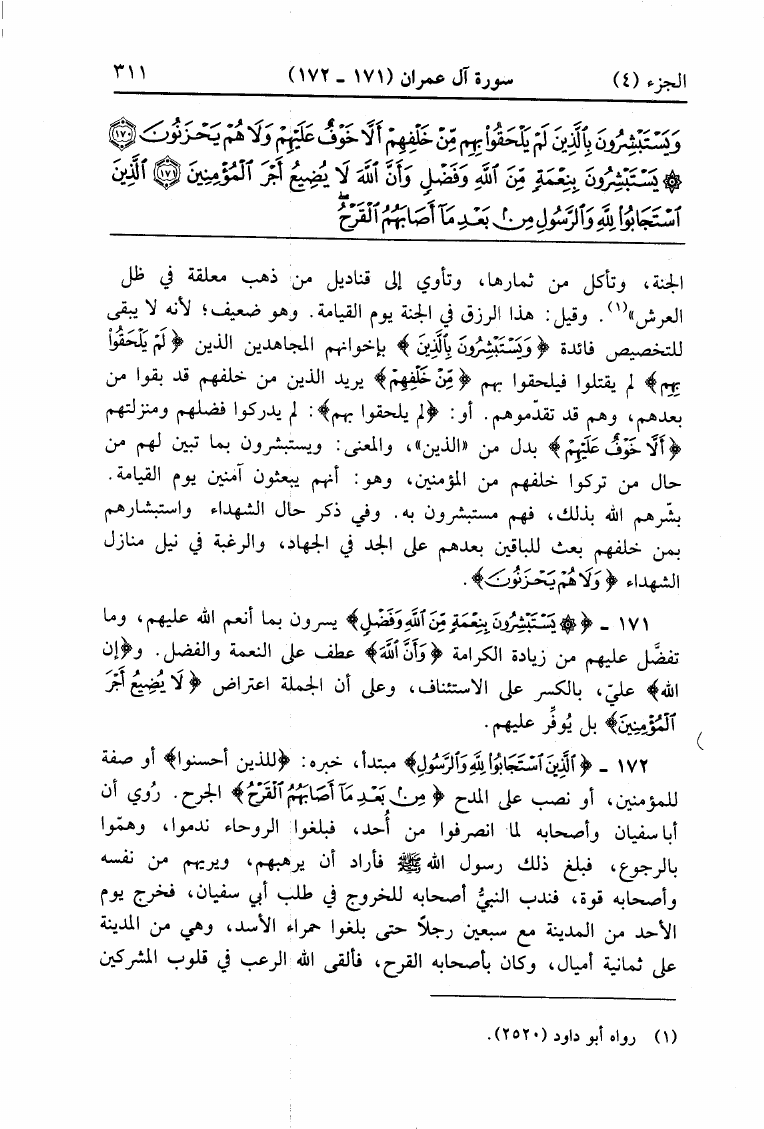 الجزء (٤) سورة آل عمران (١٧١ ـ ١٧٢) ٣١١
وَيَسْتَبْشِرُونَ بِالَّذِينَ لَمْ يَلْحَقُوا بِهِم مِّنْ خَلْفِهِمْ أَلَّا خَوْفٌ عَلَيْهِمْ وَلَا هُمْ يَحْزَنُونَ ﴿١٧٠﴾
۞ يَسْتَبْشِرُونَ بِنِعْمَةٍ مِّنَ اللَّهِ وَفَضْلٍ وَأَنَّ اللَّهَ لَا يُضِيعُ أَجْرَ الْمُؤْمِنِينَ ﴿١٧١﴾ الَّذِينَ
اسْتَجَابُوا لِلَّهِ وَالرَّسُولِ مِن بَعْدِ مَا أَصَابَهُمُ الْقَرْحُ
الجنة، وتأكل من ثمارها، وتأوي إلى قناديل من ذهب معلقة في ظل
العرش»(١). وقيل: هذا الرزق في الجنة يوم القيامة. وهو ضعيف؛ لأنه لا يبقى
للتخصيص فائدة ﴿وَيَسْتَبْشِرُونَ بِالَّذِينَ﴾ بإخوانهم المجاهدين الذين ﴿لَمْ يَلْحَقُوا
بِهِم﴾ لم يقتلوا فيلحقوا بهم ﴿مِّنْ خَلْفِهِمْ﴾ يريد الذين من خلفهم قد بقوا من
بعدهم، وهم قد تقدّموهم. أو: ﴿لم يلحقوا بهم﴾: لم يدركوا فضلهم ومنزلتهم
﴿أَلَّا خَوْفٌ عَلَيْهِمْ﴾ بدل من «الذين»، والمعنى: ويستبشرون بما تبين لهم من
حال من تركوا خلفهم من المؤمنين، وهو: أنهم يبعثون آمنين يوم القيامة.
بشّرهم الله بذلك، فهم مستبشرون به. وفي ذكر حال الشهداء واستبشارهم
بمن خلفهم بعث للباقين بعدهم على الجد في الجهاد، والرغبة في نيل منازل
الشهداء ﴿وَلَا هُمْ يَحْزَنُونَ﴾.
١٧١ ـ ﴿۞ يَسْتَبْشِرُونَ بِنِعْمَةٍ مِّنَ اللَّهِ وَفَضْلٍ﴾ يسرون بما أنعم الله عليهم، وما
تفضَّل عليهم من زيادة الكرامة ﴿وَأَنَّ اللَّهَ﴾ عطف على النعمة والفضل. و﴿إن
الله﴾ عليّ، بالكسر على الاستئناف، وعلى أن الجملة اعتراض ﴿لَا يُضِيعُ أَجْرَ
الْمُؤْمِنِينَ﴾ بل يُوفِّر عليهم.
١٧٢ ـ ﴿الَّذِينَ اسْتَجَابُوا لِلَّهِ وَالرَّسُولِ﴾ مبتدأ، خبره: ﴿للذين أحسنوا﴾ أو صفة
للمؤمنين، أو نصب على المدح ﴿مِن بَعْدِ مَا أَصَابَهُمُ الْقَرْحُ﴾ الجرح. رُوي أن
أبا سفيان وأصحابه لما انصرفوا من أُحد، فبلغوا الروحاء ندموا، وهمّوا
بالرجوع، فبلغ ذلك رسول الله ﷺ فأراد أن يرهبهم، ويريهم من نفسه
وأصحابه قوة، فندب النبيُّ أصحابه للخروج في طلب أبي سفيان، فخرج يوم
الأحد من المدينة مع سبعين رجلاً حتى بلغوا حمراء الأسد، وهي من المدينة
على ثمانية أميال، وكان بأصحابه القرح، فألقى الله الرعب في قلوب المشركين
(١) رواه أبو داود (٢٥٢٠).